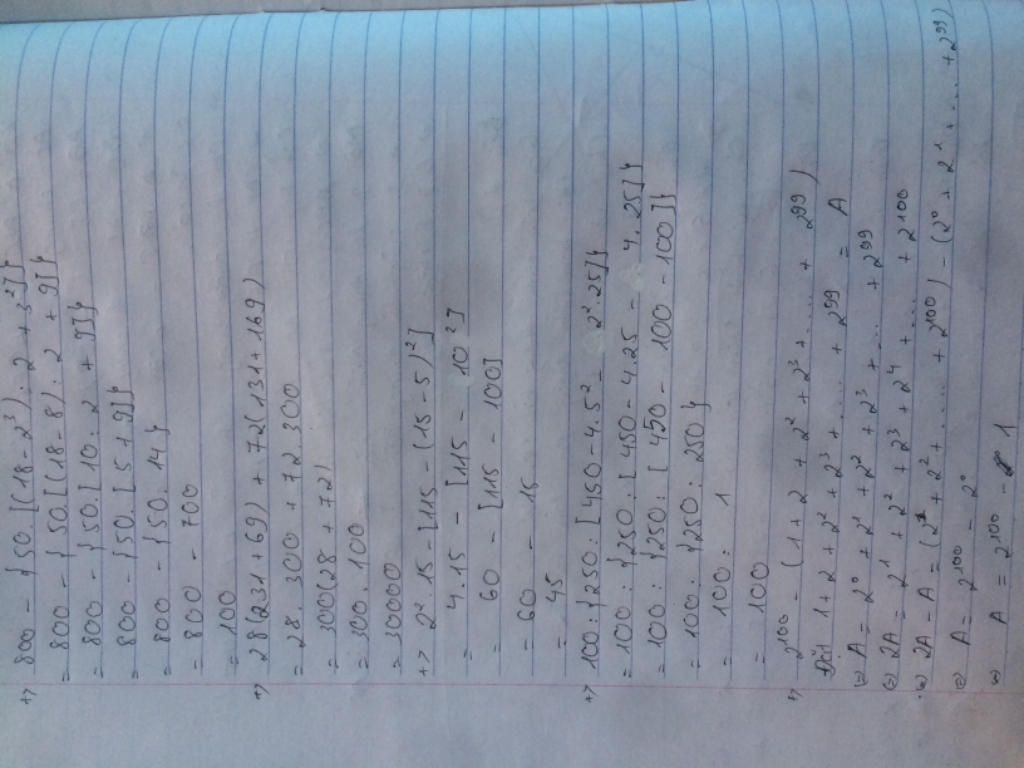 +) 800 - {50.[(18-2³):2 + 3²]}
= 800 - {50.[(18-8):2 + 9]}
= 800 - {50.[10:2 + 9]}
= 800 - {50.[5+9]}
= 800 - {50.14}
= 800 - 700
= 100
+) 28(231+69) + 72(131+169)
= 28.300 + 72.300
= 300(28+72)
= 300.100
= 30000
+) 2².15 - [115 - (15-5)²]
= 4.15 - [115 - 10²]
= 60 - [115 - 100]
= 60 - 15
= 45
+) 100:{250:[450-4.5²-2².25]}
= 100:{250:[450-4.25-4.25]}
= 100:{250:[450-100-100]}
= 100:{250:250}
= 100:1
= 100
+) 2¹⁰⁰ - (1+2+2²+2³+....+2⁹⁹)
Đặt 1+2+2²+2³+....+2⁹⁹ = A
(=) A = 2⁰+2¹+2²+2³+....+2⁹⁹
(=) 2A = 2¹+2²+2³+2⁴+....+2¹⁰⁰
(=) 2A - A = (2¹+2²+....+2¹⁰⁰) - (2⁰+2¹+....+2⁹⁹)
(=) A = 2¹⁰⁰ - 2⁰
(=) A = 2¹⁰⁰ - 1